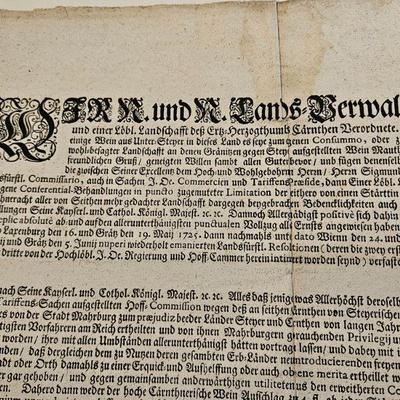 WIR N. und N. Lands-Verwal
und einer Löbl. Landschafft deß Ertz-Herzogthumb Cärnthen Verordnete.
einige Wein aus Unter-Steyer in dieses Land es seye zum genen Consummo, oder z
wohl-besagter Landschafft an denen Gränitzen gegen Steyr aufgestellten Wein Mauth
freundlichen Gruß, geneigten Willen sambt allen Guterbevor, und fügen denenselb
die zwischen Seiner Excellenz dem Hoch und Wohlgebohrn Herrn, Herrn Sigmund
dsfürstl. Commissario, auch in Sachen J. Oe. Commercien und Tariffens Præside, dann Einer Löbl.
gene Conferential-Behandlungen in puncto zugemuteter Limitation der seithero von einen Stärttin
hneracht aller von Seithen mehr gedachter Landschafft dargegen beygebrachten Bedencklichkeiten auch
llungen Seine Kayserl. und Cathol. Königl. Majest. ꝛc. ꝛc. Dannoch Allergädigist positivè sich dahin
eplic absolutè ab- und auf den allerunterthänigisten punctualen Vollzug alles Ernsts angewisen haben
o Laxenburg den 16. und Grätz den 19. May 1725. dann nachmahls unt dato Wienn den 24. und
nij und Grätz den 5. Junij nuperi wiederholt emanirten Landsfürstl. Resolutionen (deren die zwey erst
dritte von der Hochlöbl. J. Oe. Regierung und Hoff-Cammer hereinintimirt worden seynd) verfasset
nach Seine Kayserl. und Cathol. Königl. Majest. ꝛc. ꝛc. Alles daß jenige was Allerhöchst deroselb
Tariffens-Sachen aufgestellten Hoff-Commission wegen deß an seithen Cärnthen von Steyerischen
s von der Stadt Mahrburg zum præjudiz beeder Länder Steyer und Cärnthen von langen Jahre
tigisten Vorfahrern am Reich ertheilten und von ihnen Mahrburgern girauchenden Privilegij
worden, ihro mit allen Umbständen allerunterthänigist hätten vortragen lassen, und dabey mit
nden, daß dergleichen dem zu Nutzen deren gesambten Erb-Länder neintroducirenden freyen
adt oder Orth damahls zu einer Erquick und Aufhelffung oder auch ob eine merita ertheillet
er gar gehoben, und gegen gemeinsamben anderwärthigen utilitetens den erweiterten Co
Dahero dann weder der hoche Cärnthnerische Wein Auschlag zu 4. fl.